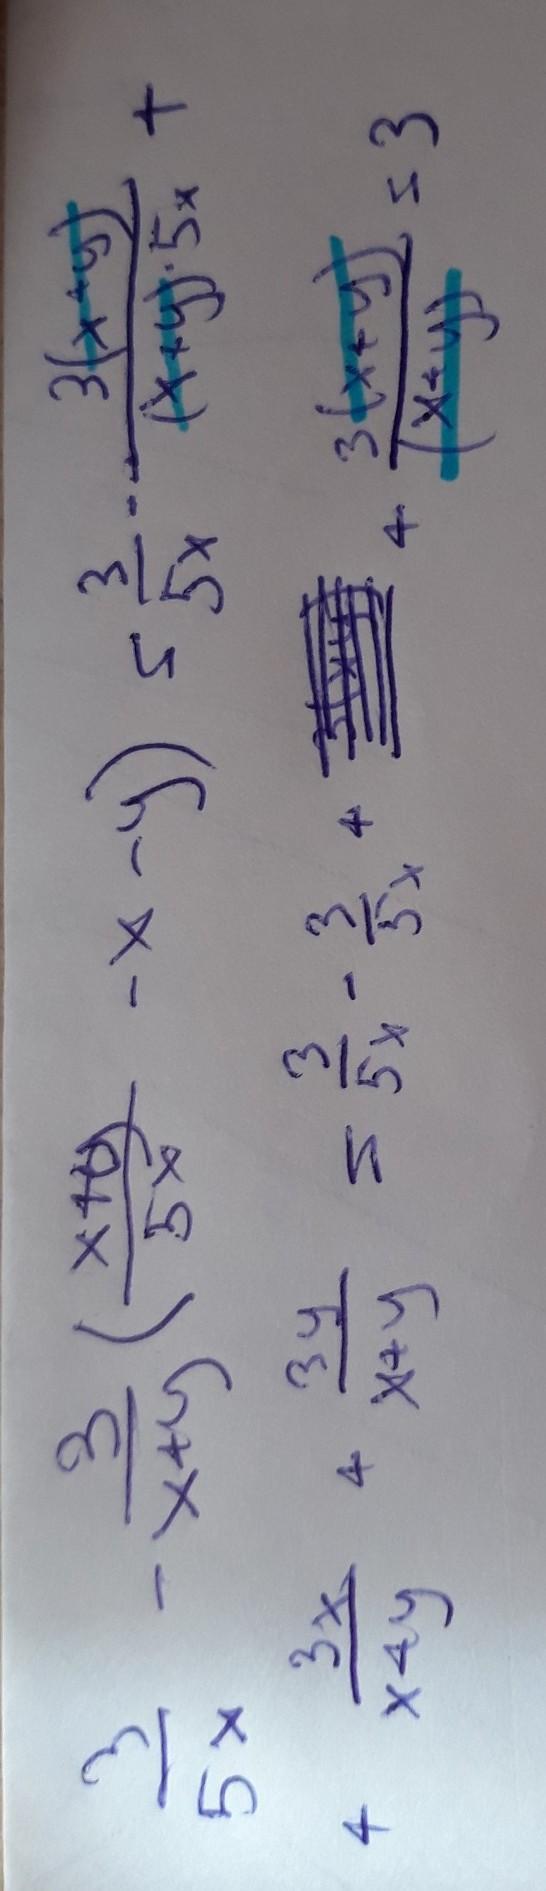 3/5x - 3/x+y (x+y/5x - x - y) = 3/5x - 3(x+y)/(x+y)·5x +
+ 3x/x+y + 3y/x+y = 3/5x - 3/5x + + 3(x+y)/(x+y) = 3